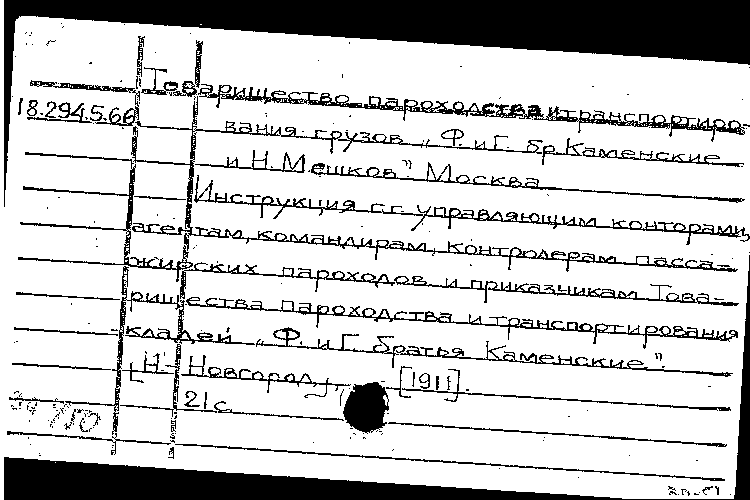 Товарищество пароходства и транспортиро-
18.294.5.66
вания грузов „Ф. и Г. бр. Каменские
и Н. Мешков". Москва.
Инструкция г.г. управляющим конторами,
агентам, командирам, контролерам пасса-
жирских пароходов и приказчикам Това-
рищества пароходства и транспортирования
кладей „Ф. и Г. братья Каменские".
[Н.-Новгород], [1911].
21 с.